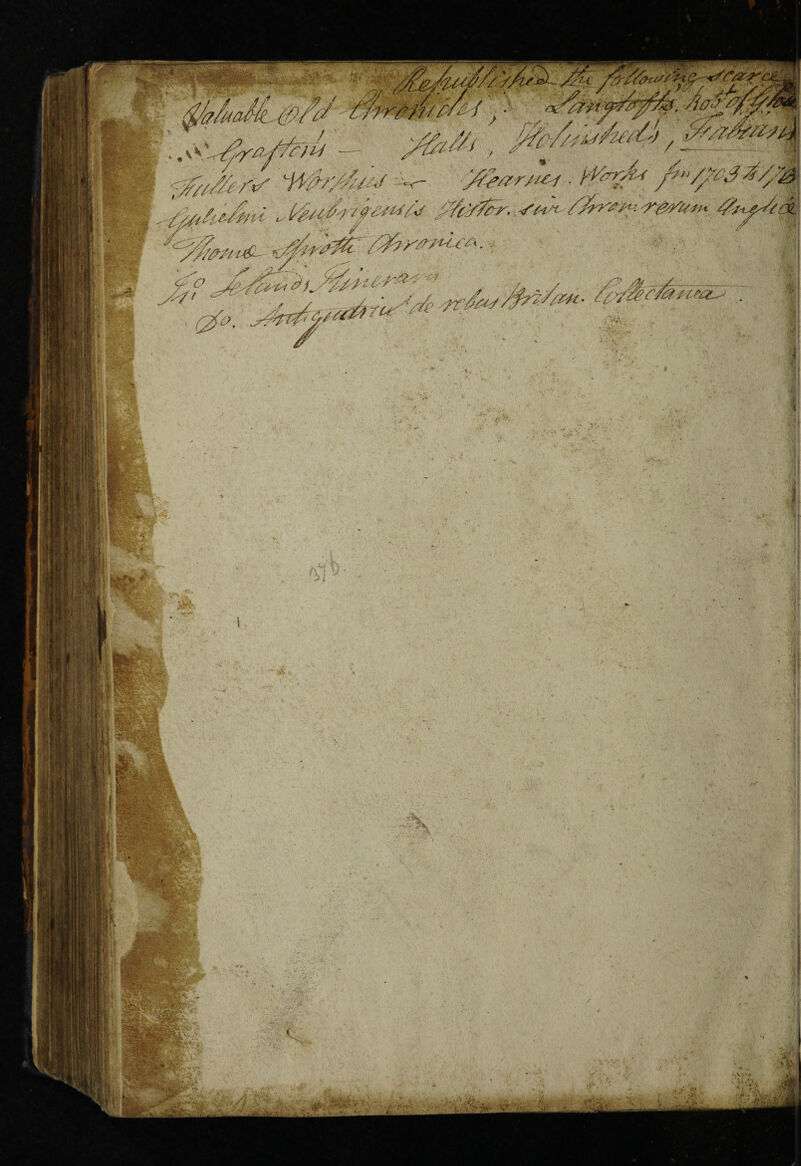 Republished the following scarce
Valuable Old Chronicles, : Langtofts, Robt of Glou
Graftons — Halls, Holinsheds, Fabians
Fullers Worthies — Hearnes. Works fm 1703 to
Gulielmi Neubrigensis Histor. sive Chron: rerum Anglic
Thomæ Sprotti Chronica.
Jno Lelands Itinerary
Do. de rebus Britan. Collectanea.
376.